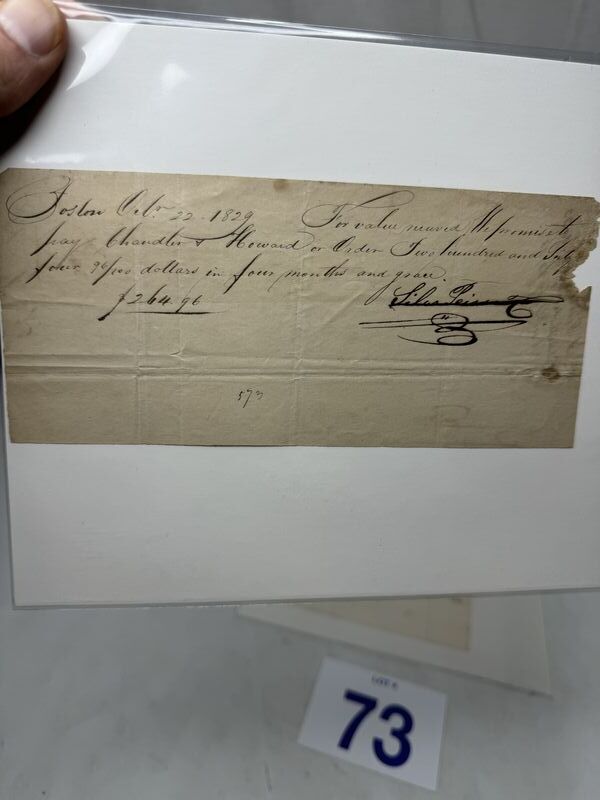 Boston Oct. 22. 1829 For value received We promise to
pay Chandler & Howard or Order Two hundred and Sixty
four 96/100 dollars in four months and grace
$264.96
Silas
573
LOT #
73